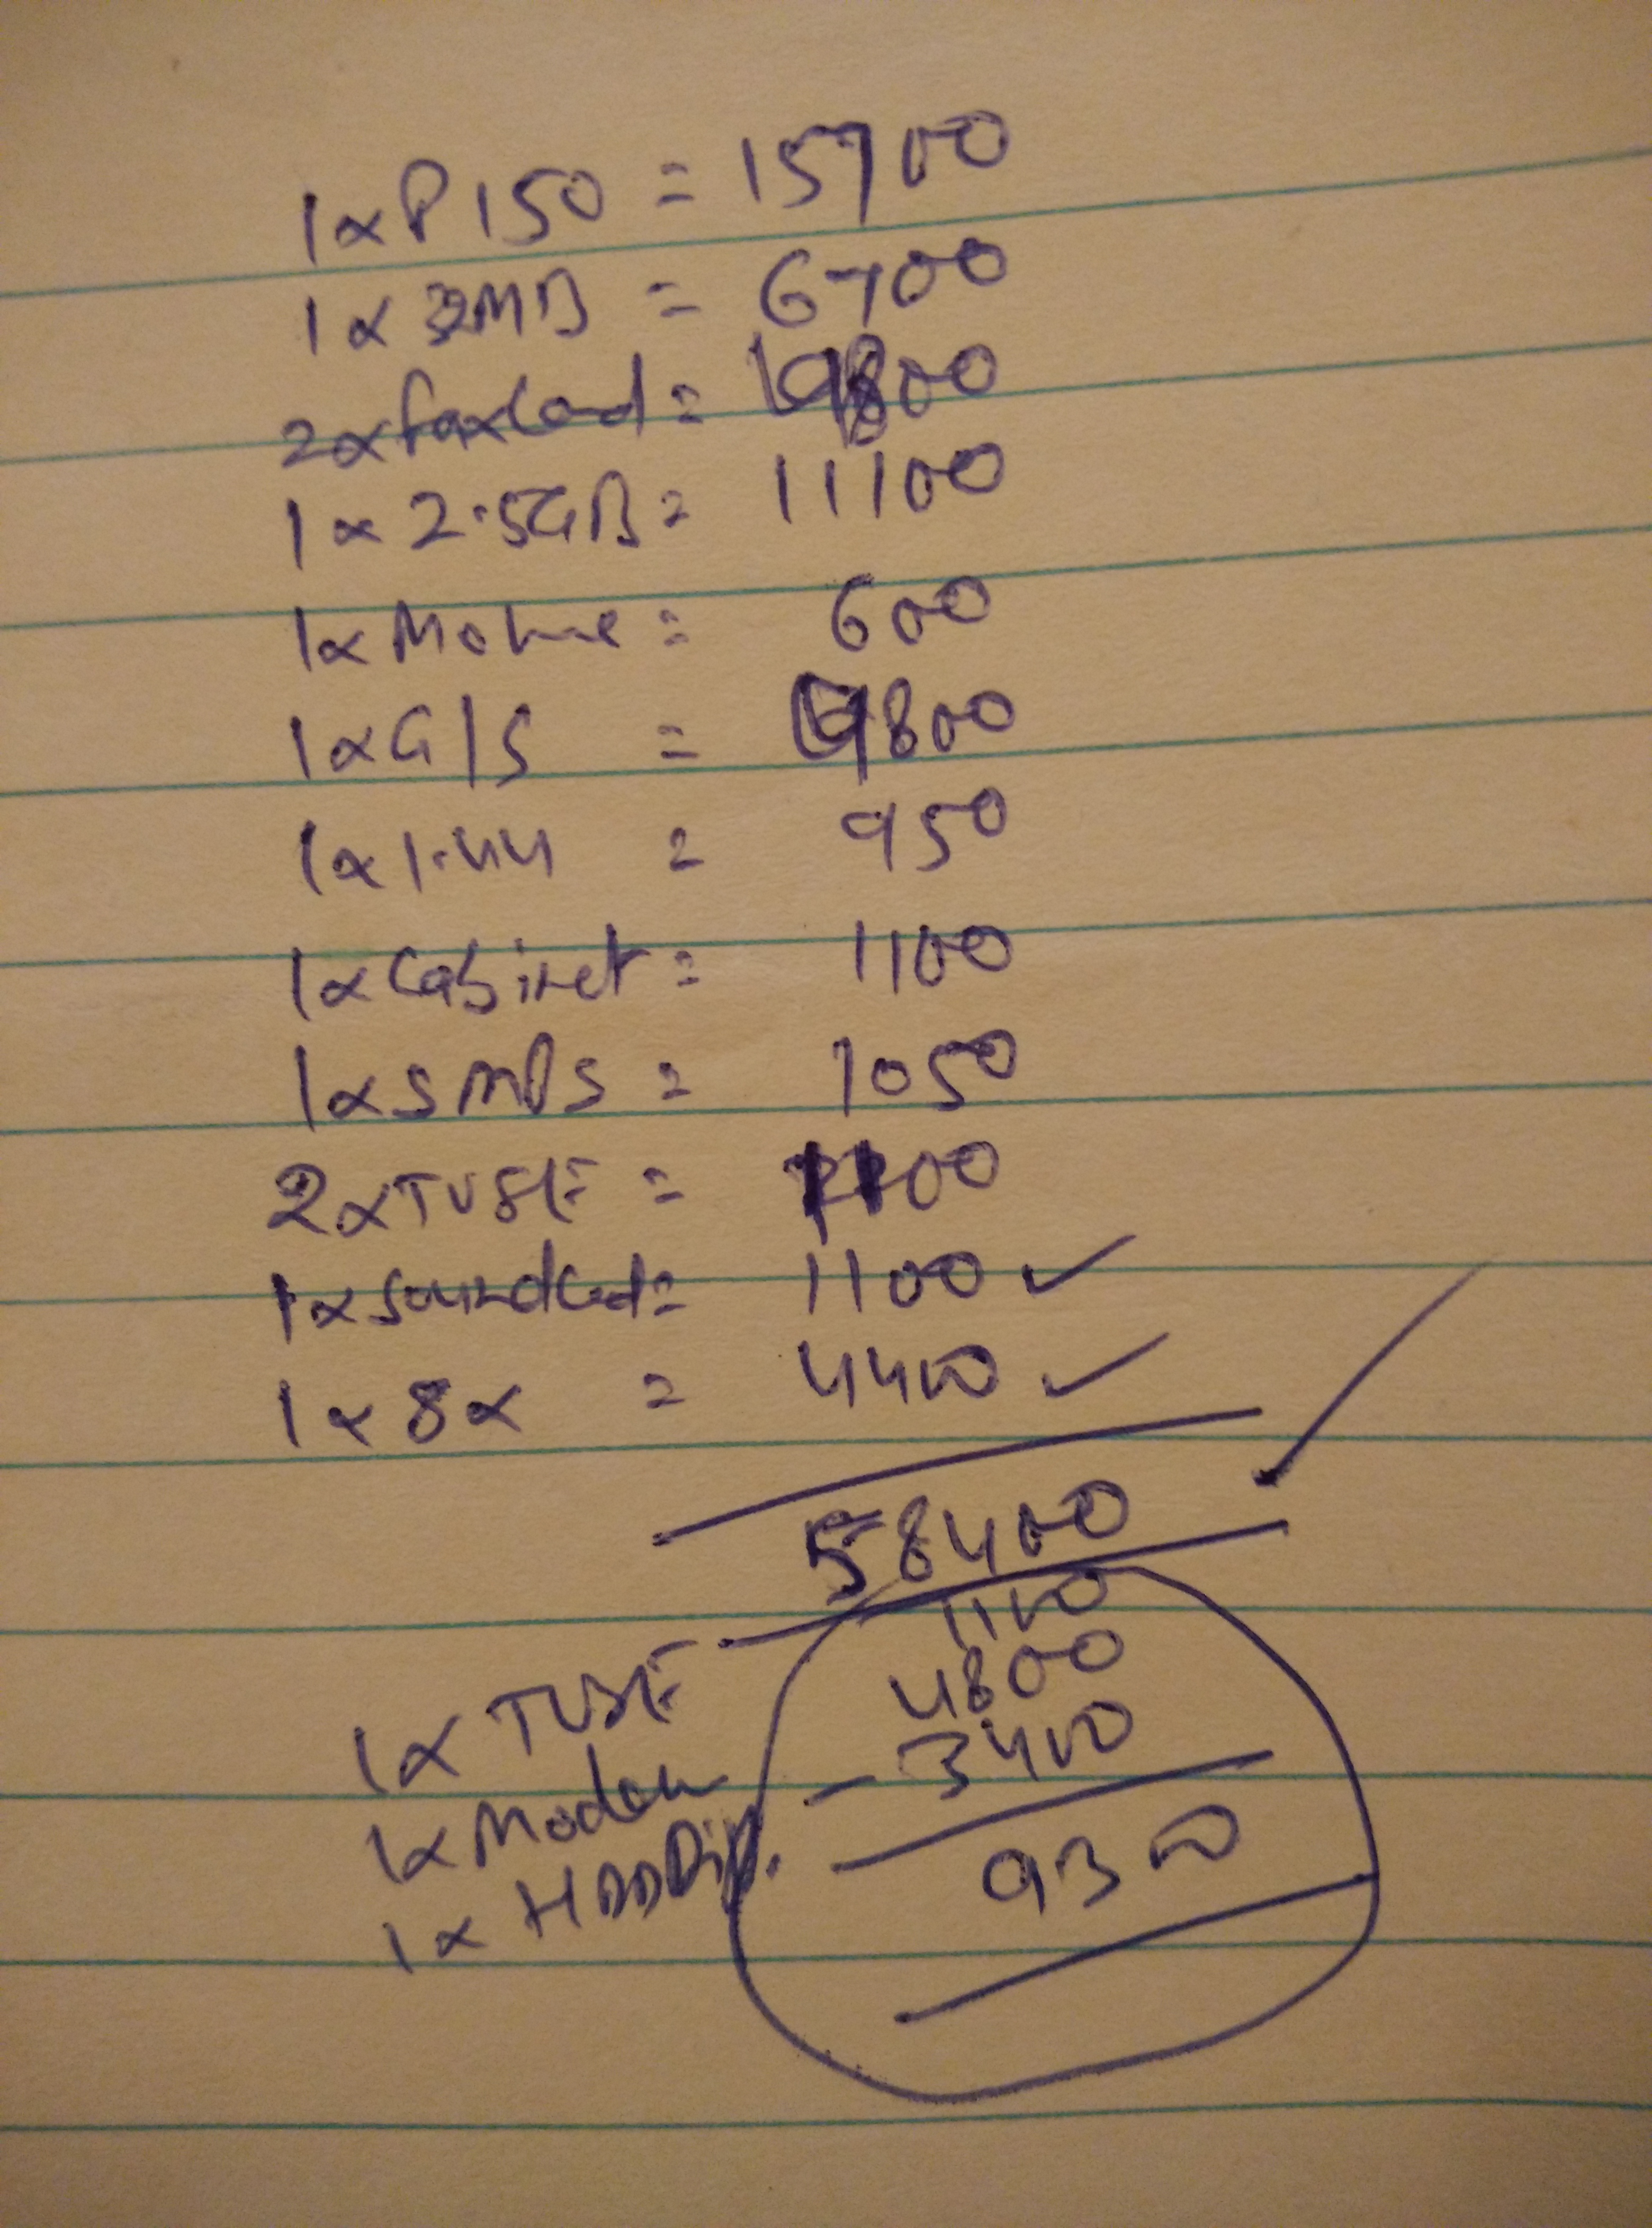 1xP150 = 15700
1x32MB = 6700
2xfaxCard = 9800
1x2.5GB = 11100
1xMouse = 600
1xG/S = 4800
1x1.44 = 950
1xCabinet = 1100
1xSMPS = 1050
2xTVSE = 1100
1xSoundCard = 1100
1x8x = 4400
58400
1xTVSE 1100
1xModem 4800
1xHDD - 3400
9300